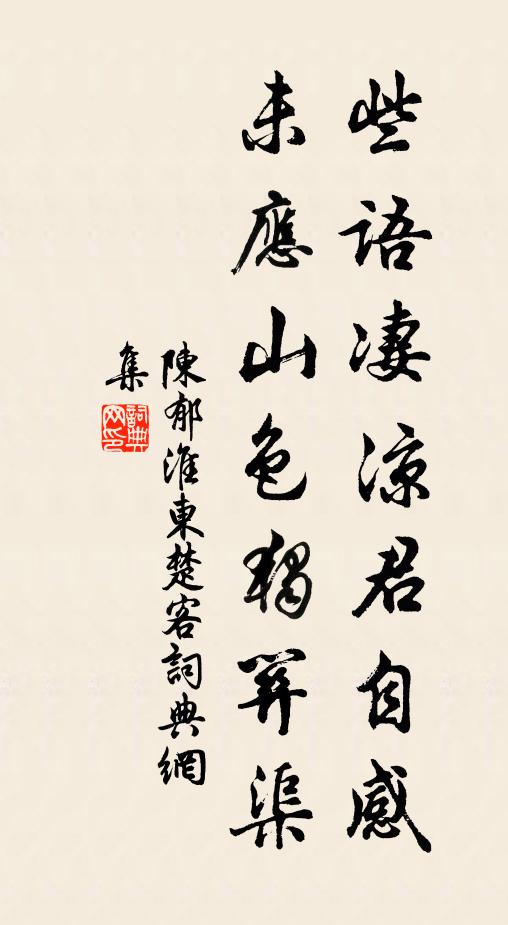 些語凄涼君自感
未應山色獨渠
陳郁淮東楚客詞典網
集
詞典
网印